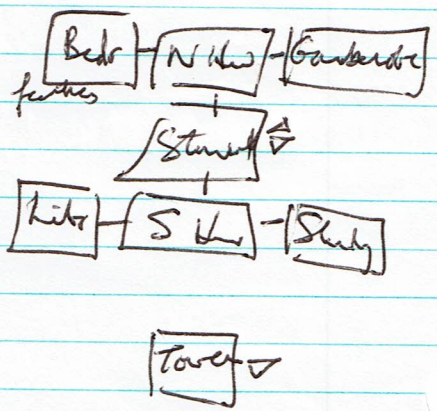 Bedr N Hw Garderobe
feathers
Stairwell
Libr S Hw Study
Tower